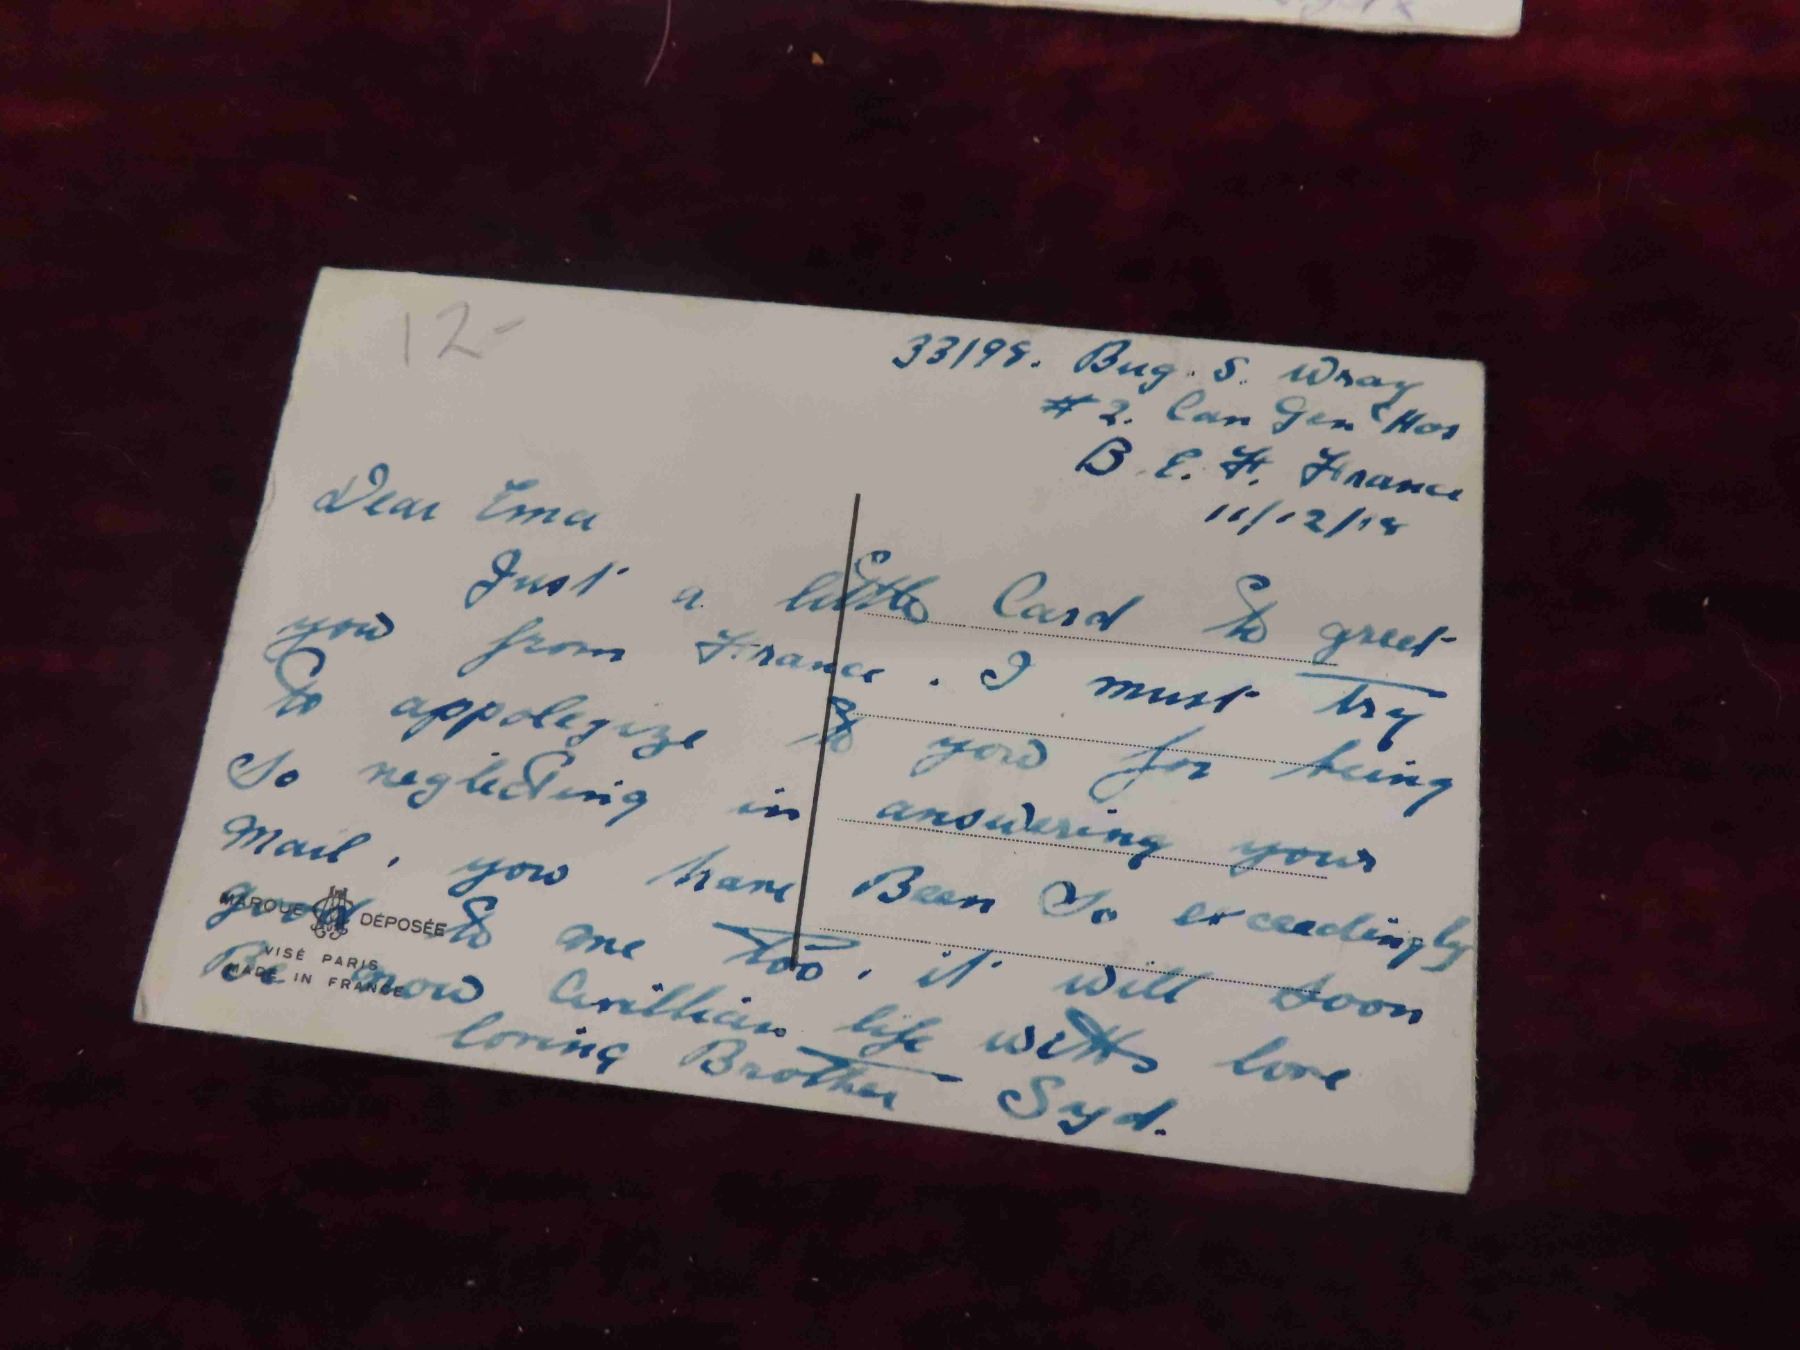 12-
33199. Bug. S. Wray
#2. Can Gen Hos
B. E. F. France
11/12/18
Dear Ema
Just a little Card to greet
you from France. I must try
to appolegize to you for being
so neglecting in answering your
Mail, you have Been so exceedingly
good to me too, it will soon
Be now Civillian life with love
loving Brother Syd.
MARQUE DÉPOSÉE
VISÉ PARIS
MADE IN FRANCE